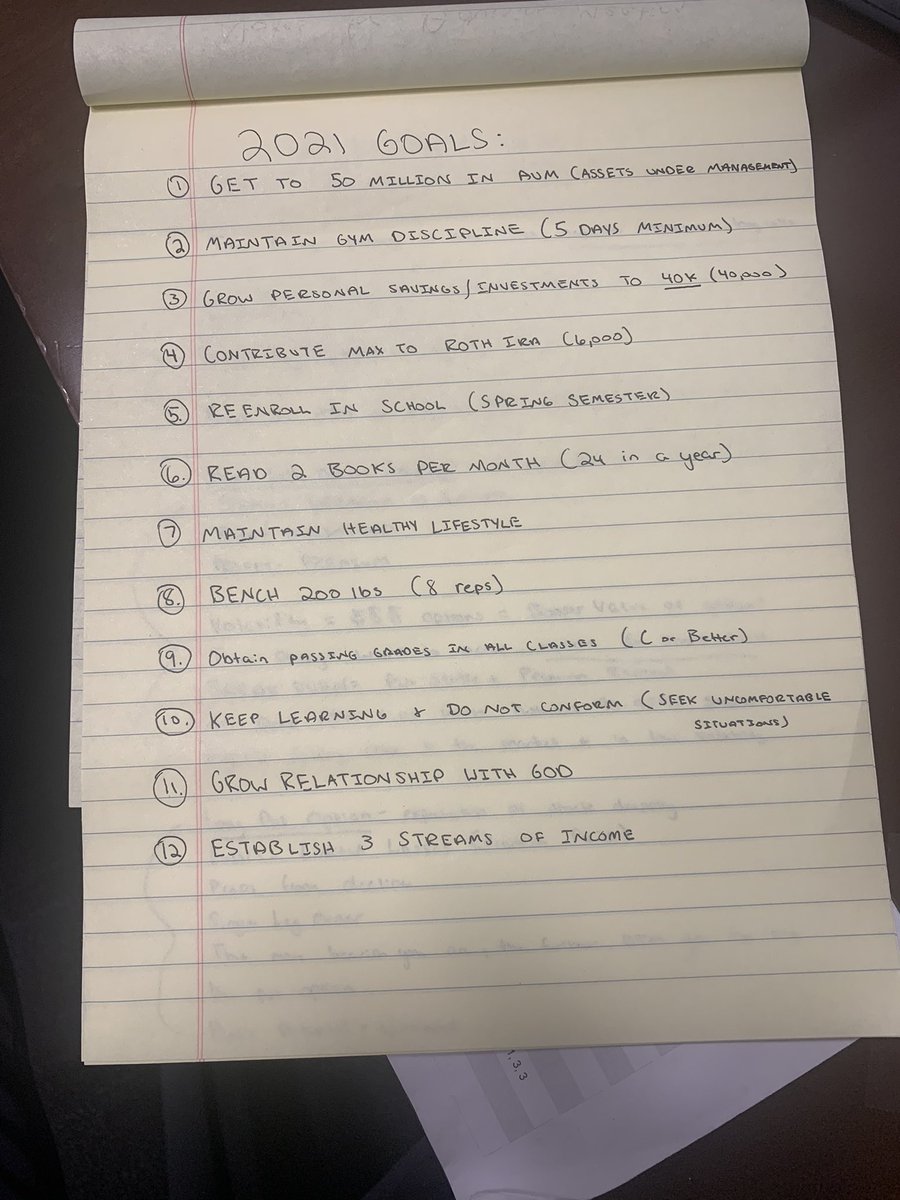 2021 GOALS:
① GET TO 50 MILLION IN AUM (ASSETS UNDER MANAGEMENT)
② MAINTAIN GYM DISCIPLINE (5 DAYS MINIMUM)
③ GROW PERSONAL SAVINGS/INVESTMENTS TO 40K (40,000)
④ CONTRIBUTE MAX TO ROTH IRA (6,000)
⑤. RE ENROLL IN SCHOOL (SPRING SEMESTER)
⑥. READ 2 BOOKS PER MONTH (24 in a year)
⑦ MAINTAIN HEALTHY LIFESTYLE
⑧. BENCH 200 lbs (8 reps)
⑨. Obtain PASSING GRADES IN ALL CLASSES (C or Better)
⑩. KEEP LEARNING & DO NOT CONFORM (SEEK UNCOMFORTABLE
SITUATIONS)
⑪. GROW RELATIONSHIP WITH GOD
⑫ ESTABLISH 3 STREAMS OF INCOME
1, 3, 3